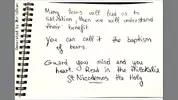 Many tears will lead us to
salvation, then we will understand
their benefit
You can call it the baptism
of tears.
Guard your mind and your
heart. Read in the Philokalia
St Nicodemos the Holy